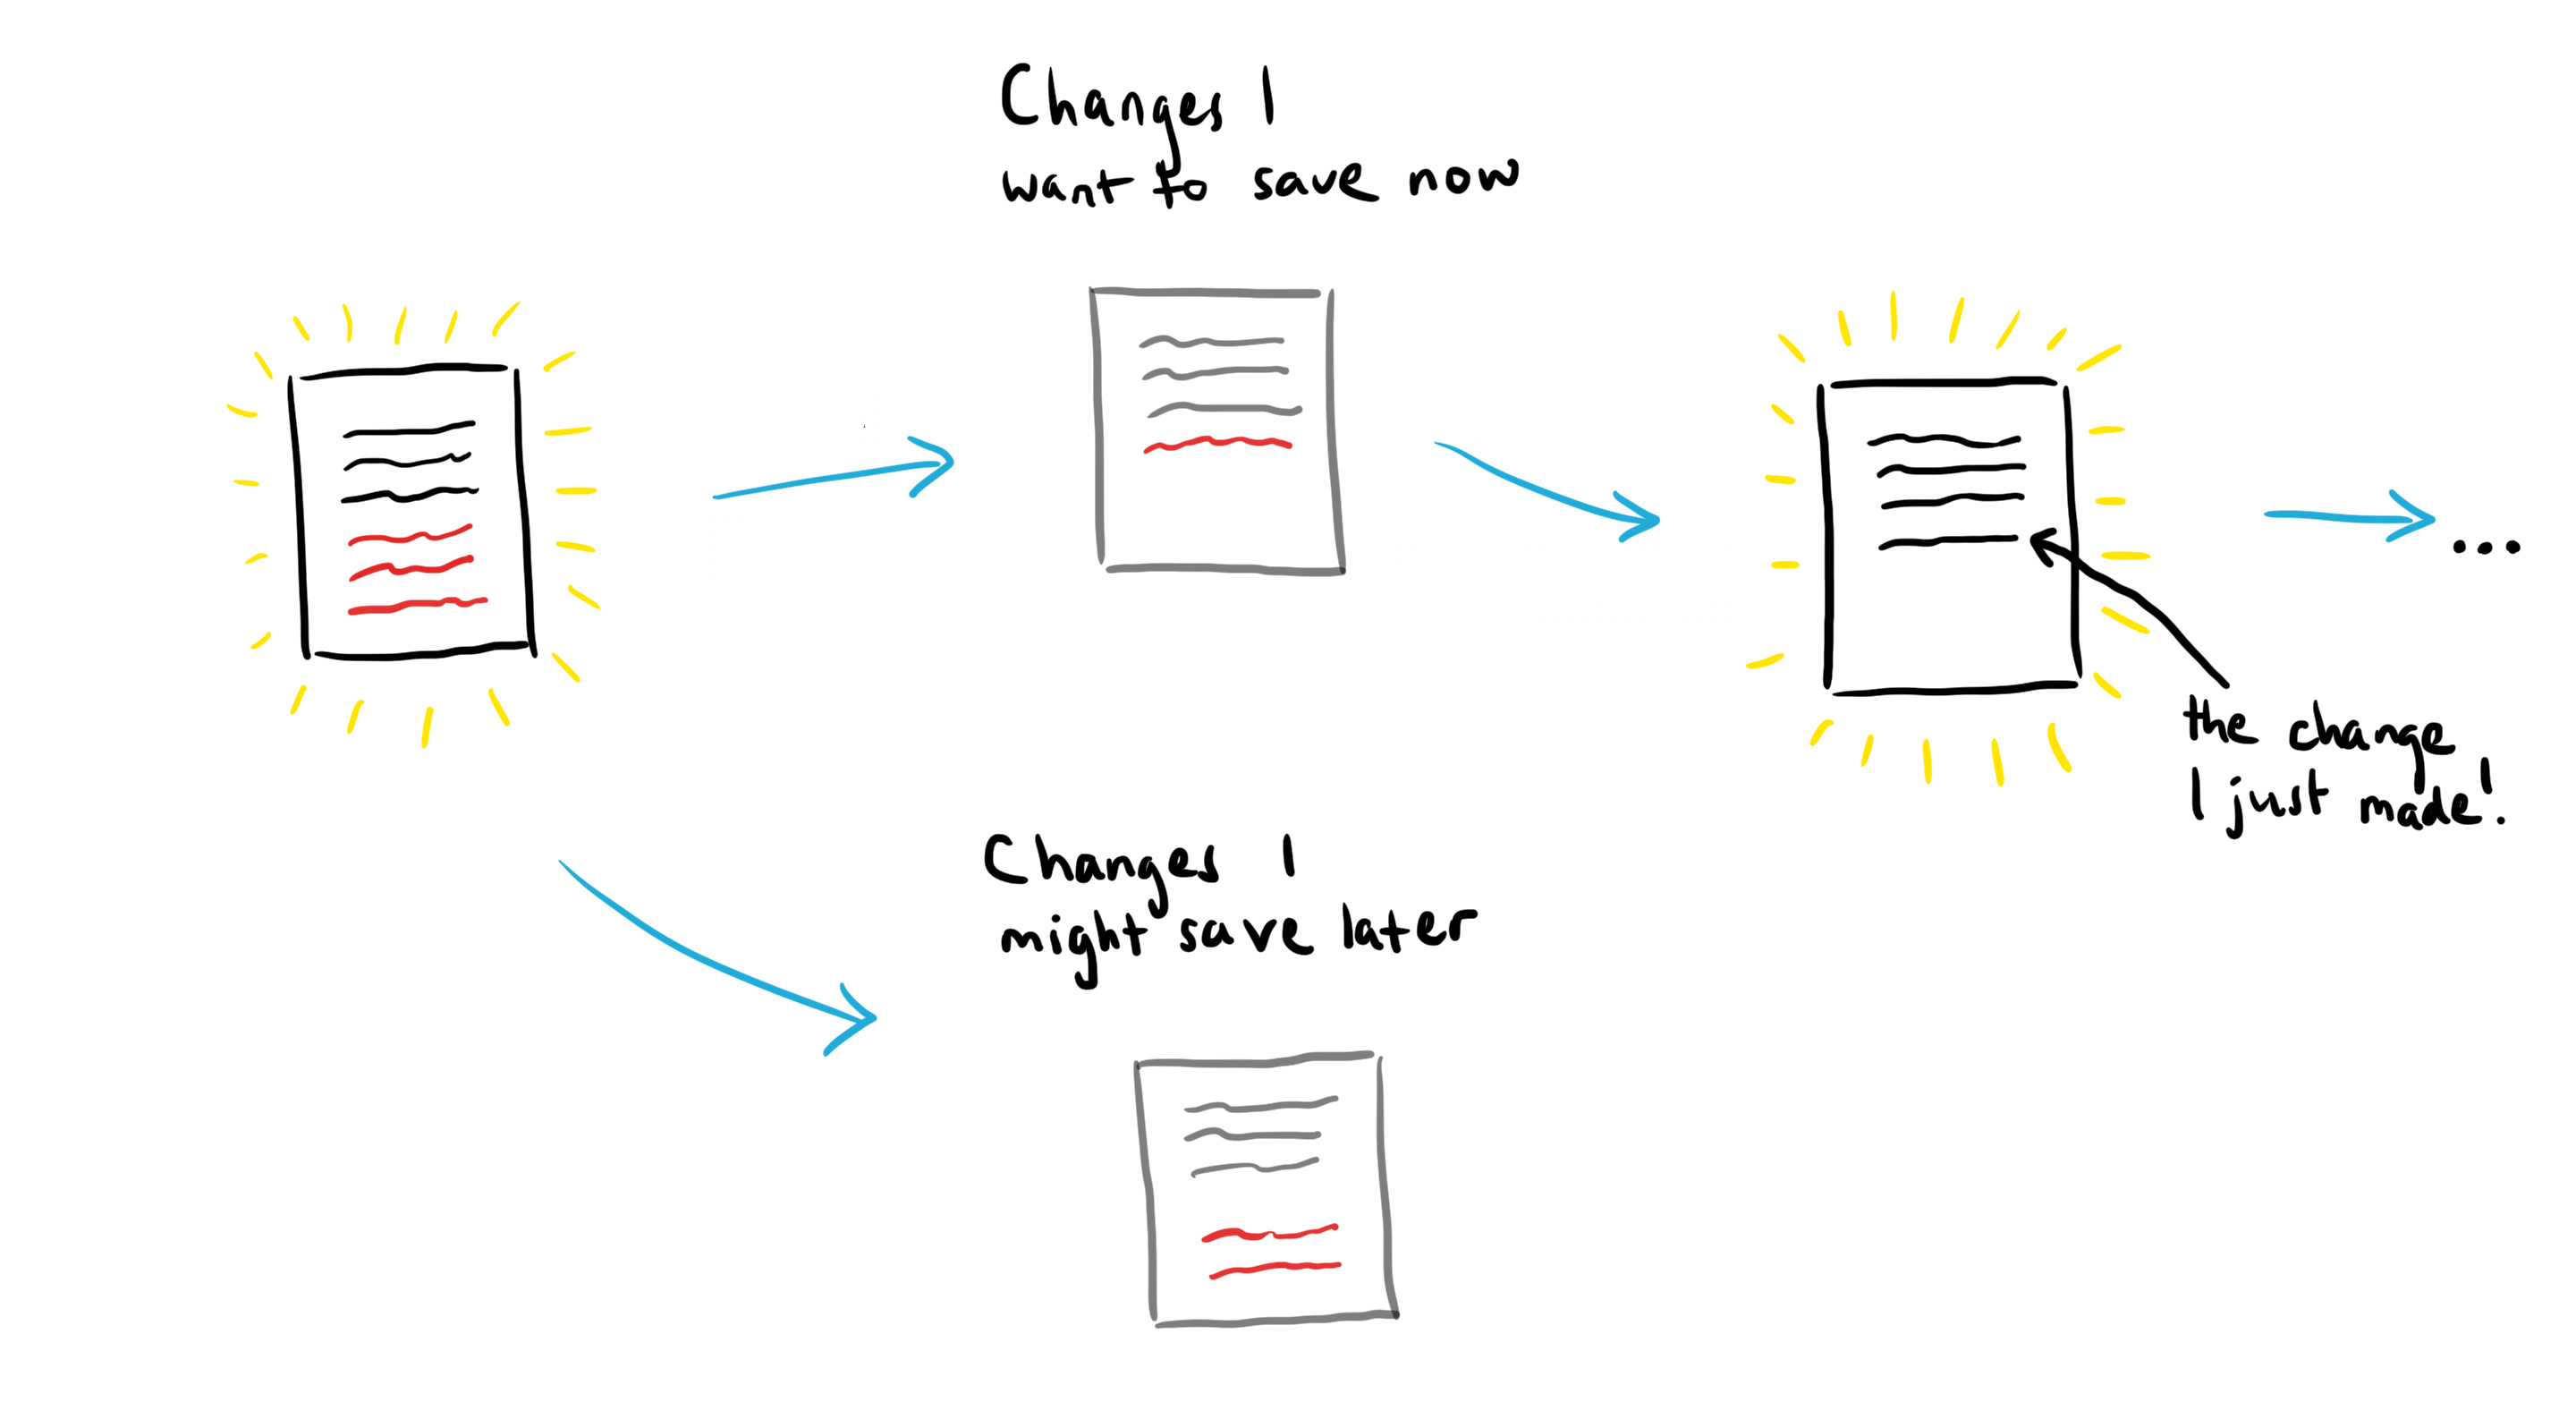 Changes I
want to save now
the change
I just made!
Changes I
might save later
...